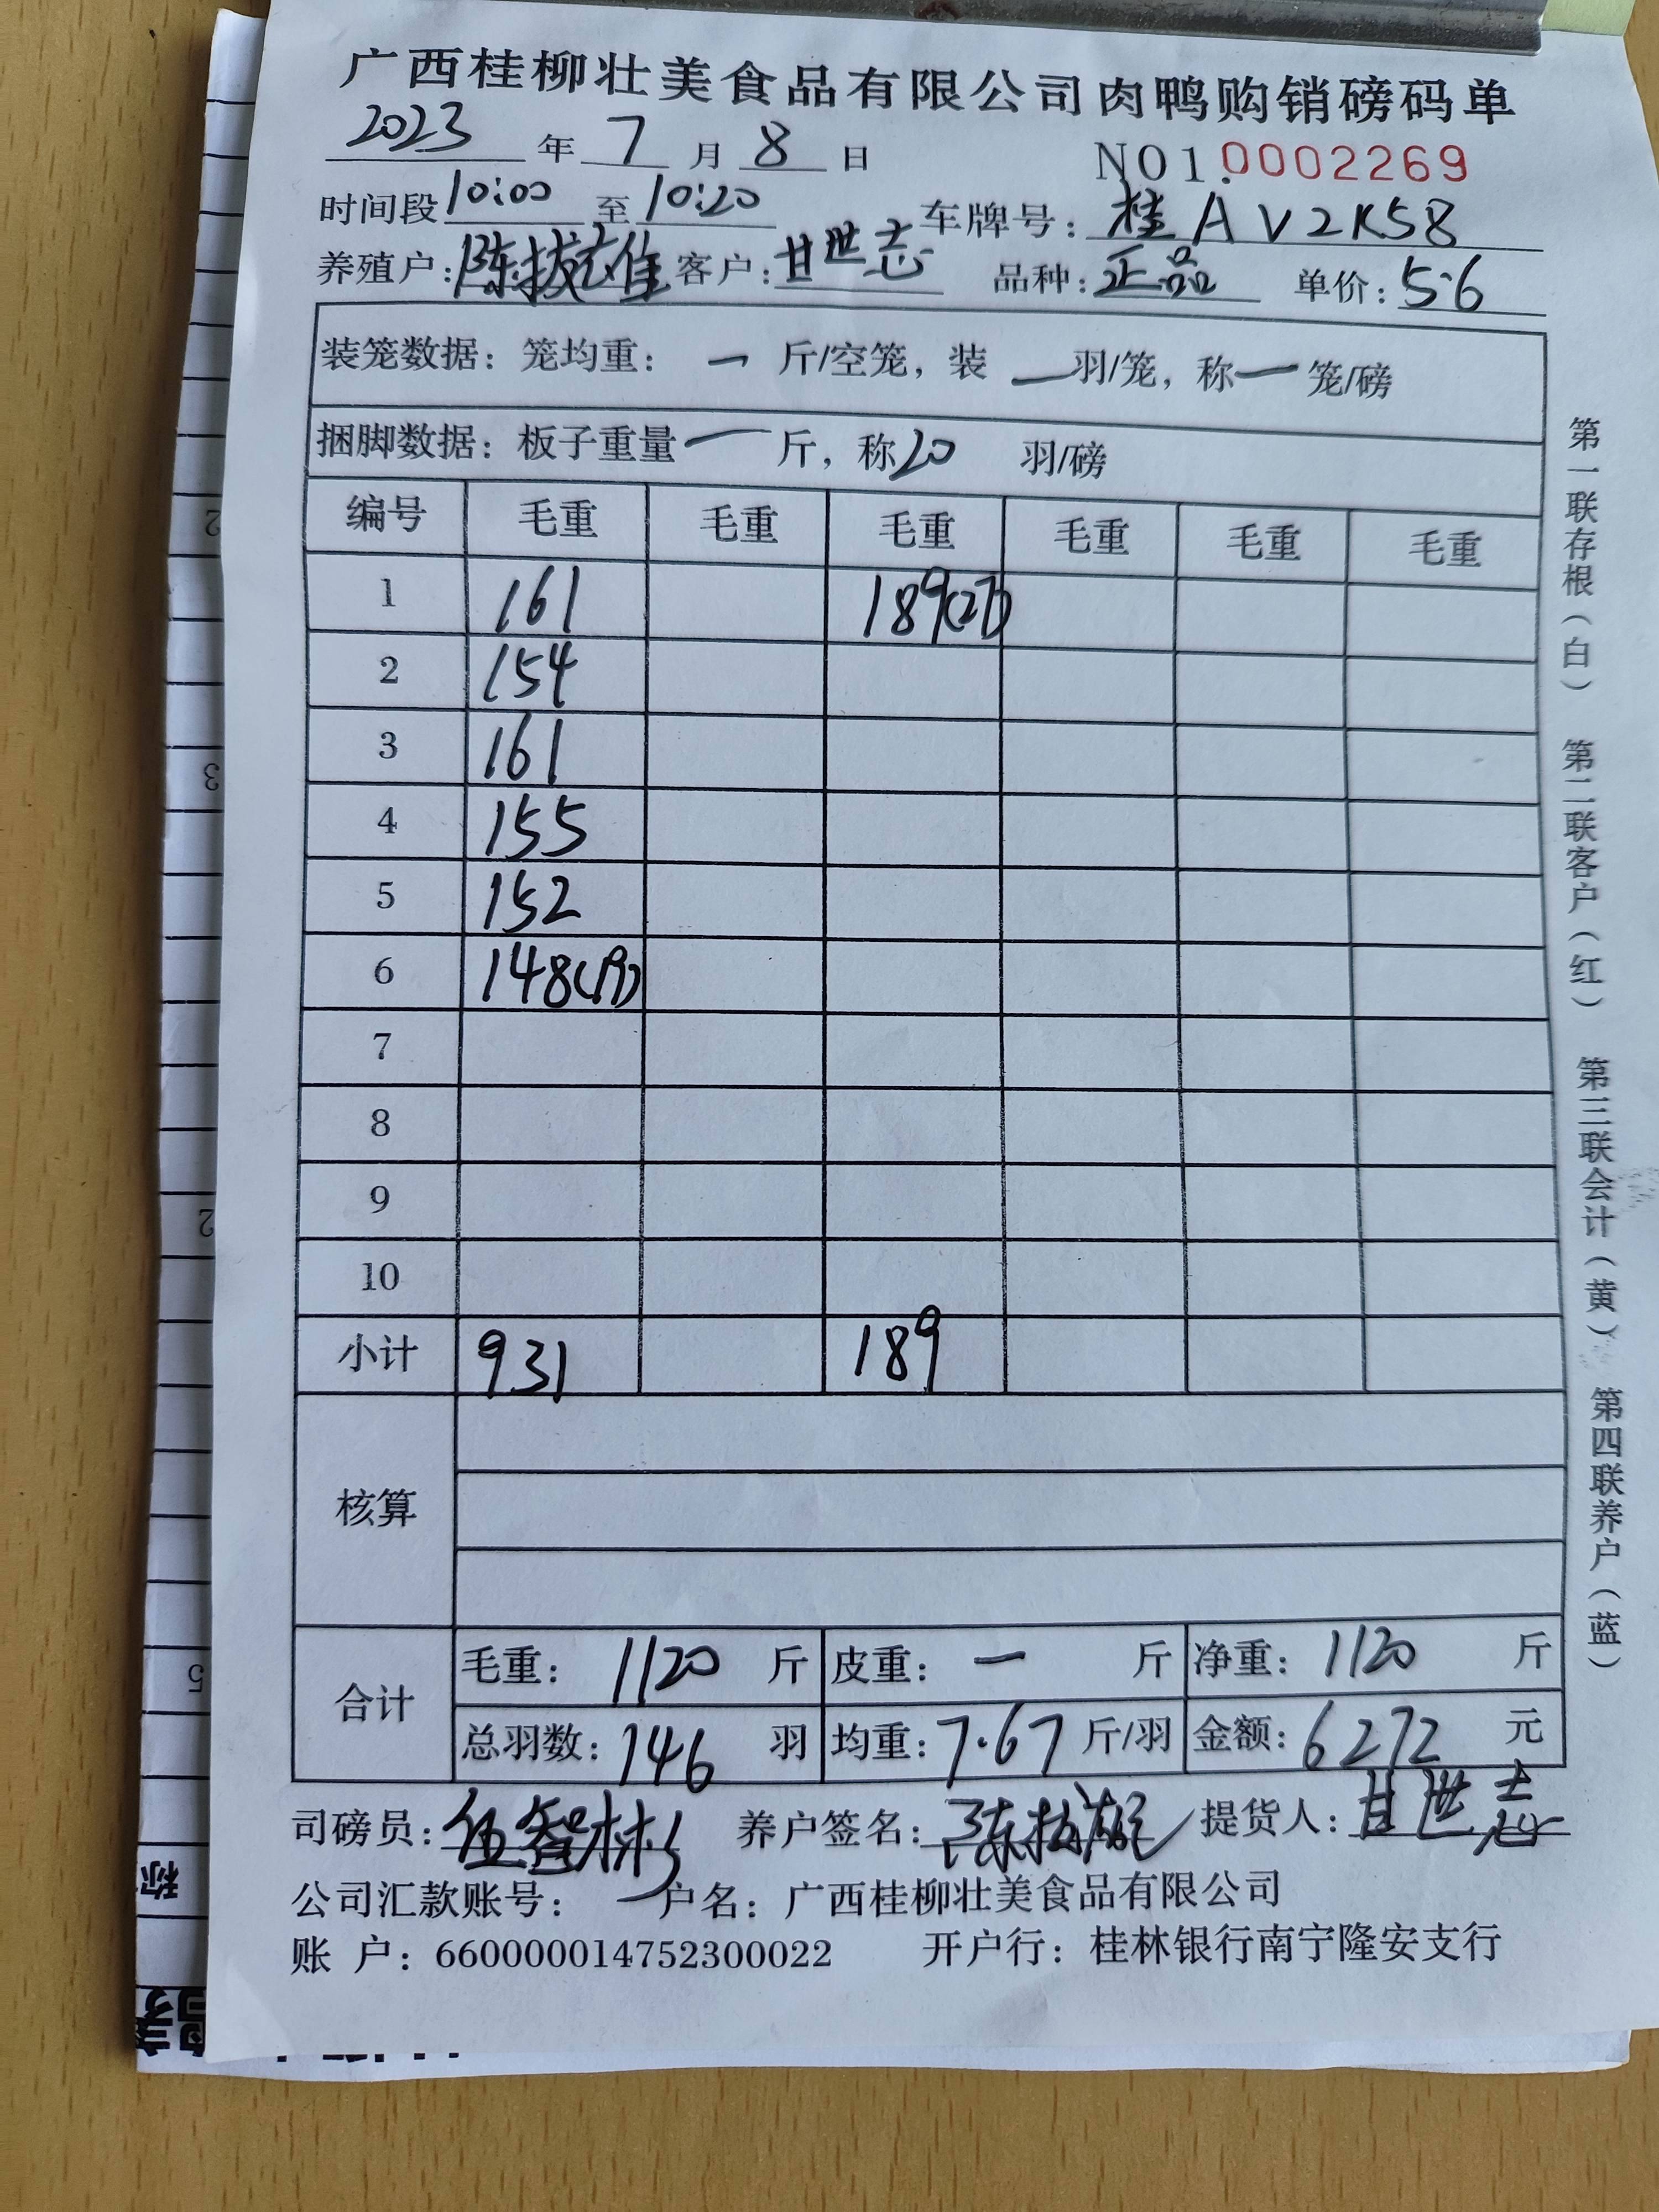 广西桂柳壮美食品有限公司肉鸭购销磅码单
2023 年 7 月 8 日 NO1.0002269
时间段 10:00 至 10:20 车牌号: 桂AV2K58
养殖户: 陈拔雄 客户: 甘世志 品种: 正品 单价: 5.6
装笼数据: 笼均重: 一 斤/空笼, 装 一 羽/笼, 称 一 笼/磅
捆脚数据: 板子重量 一 斤, 称 20 羽/磅
编号 毛重 毛重 毛重 毛重 毛重 毛重
1 161 189(27)
2 154
3 161
4 155
5 152
6 148(19)
7
8
9
10
小计 931 189
核算
合计 毛重: 1120 斤 皮重: 一 斤 净重: 1120 斤
总羽数: 146 羽 均重: 7.67 斤/羽 金额: 6272 元
司磅员: 伍智彬 养户签名: 陈拔雄 提货人: 甘世志
公司汇款账号: 户名: 广西桂柳壮美食品有限公司
账 户: 660000014752300022 开户行: 桂林银行南宁隆安支行
第一联存根(白) 第二联客户(红) 第三联会计(黄) 第四联养户(蓝)
2
3
2
5
称